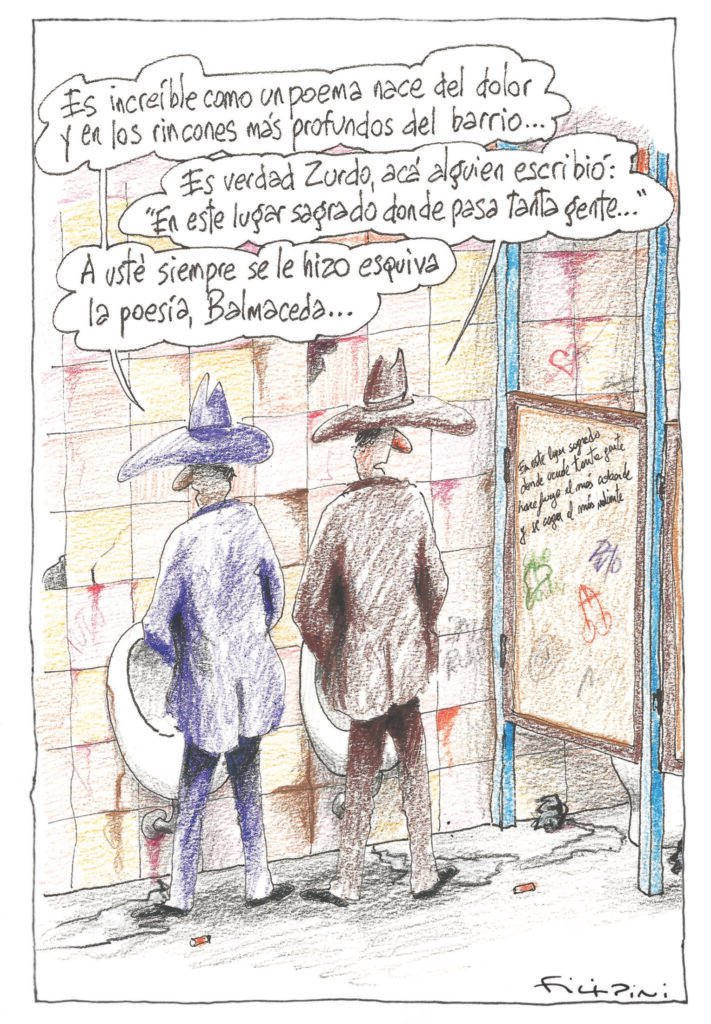 Es increíble como un poema nace del dolor
y en los rincones más profundos del barrio...
Es verdad Zurdo, acá alguien escribió:
"En este lugar sagrado donde pasa tanta gente..."
A usté siempre se le hizo esquiva
la poesía, Balmaceda...
En este lugar sagrado
donde acude tanta gente
hace fuerza el mas cobarde
y se caga el más valiente
FILIPPINI